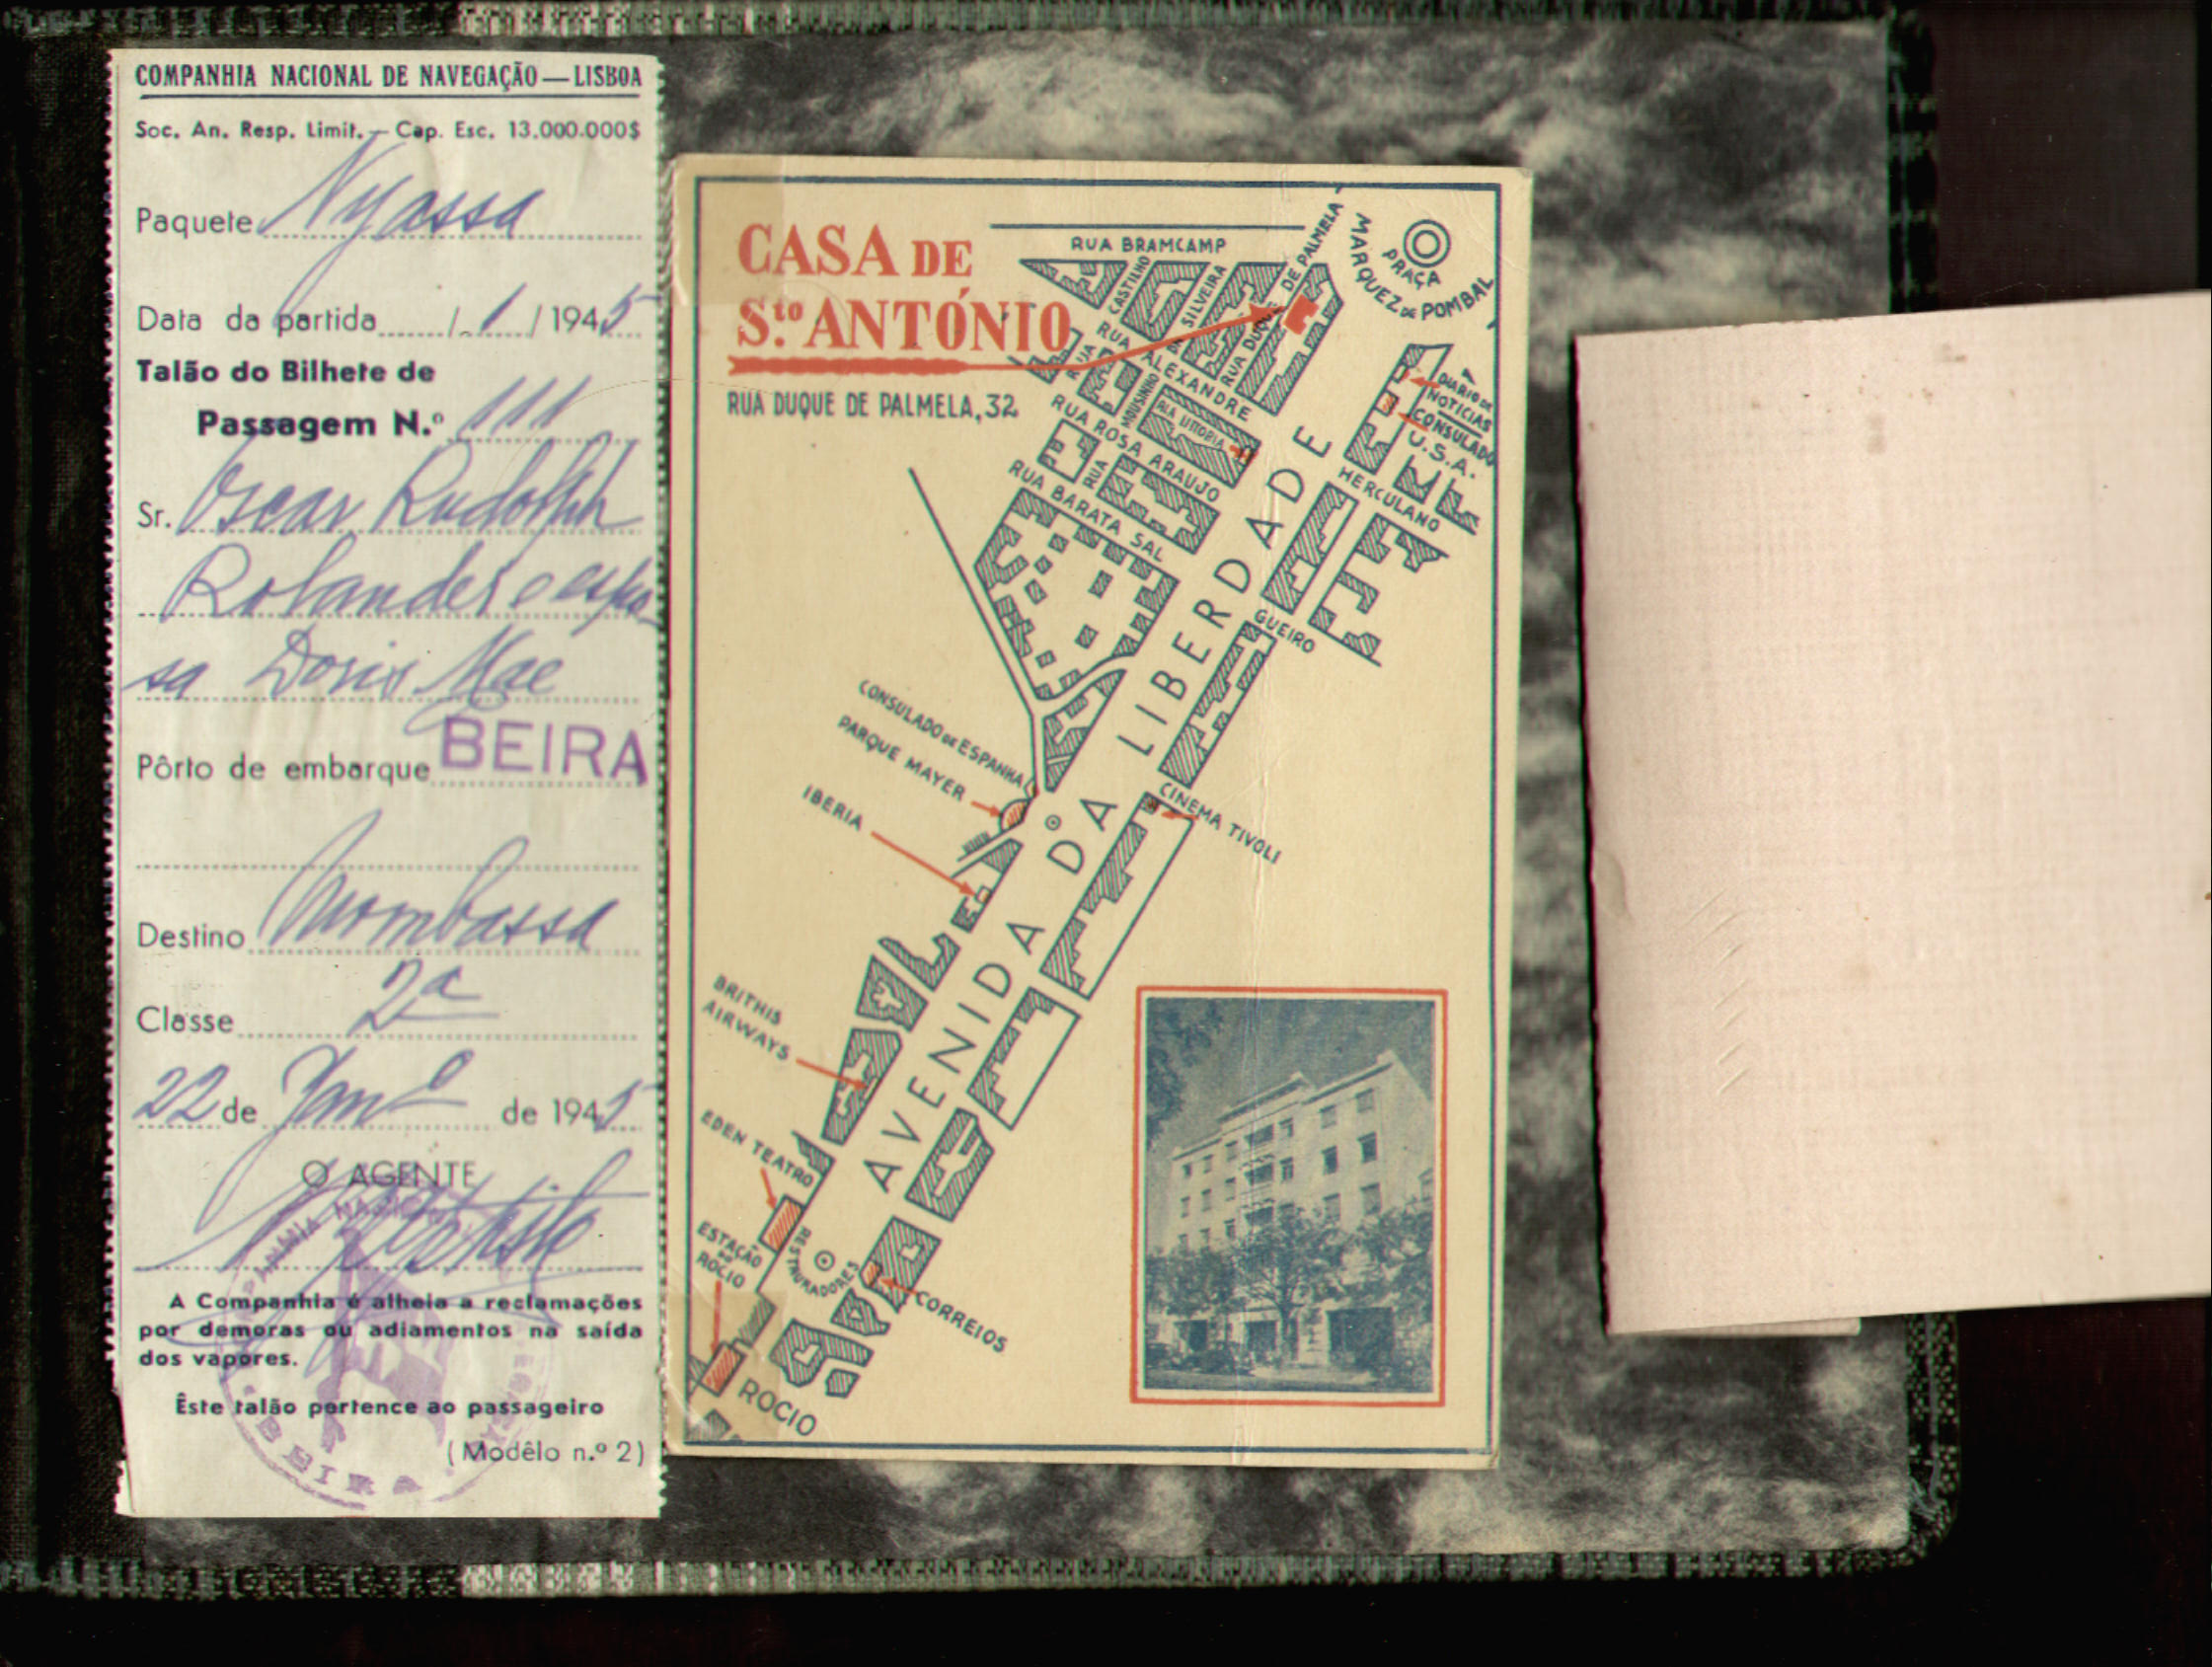 COMPANHIA NACIONAL DE NAVEGAÇÃO — LISBOA
Soc. An. Resp. Limit. — Cap. Esc. 13.000.000$
Paquete Nyassa
Data da partida / 1 / 1945
Talão do Bilhete de
Passagem N.º 111
Sr. Oscar Rudolph
Rolander e espo-
sa Doris Mae
Pôrto de embarque BEIRA
Destino Mombassa
Classe 2ª
22 de Janº de 1945
O AGENTE
A Companhia é alheia a reclamações
por demoras ou adiamentos na saída
dos vapores.
Êste talão pertence ao passageiro
(Modêlo n.º 2)
BEIRA
CASA DE
Sto. ANTÓNIO
RUA DUQUE DE PALMELA, 32
RUA BRAMCAMP
CASTILHO
RUA
SILVEIRA
RUA DUQUE DE PALMELA
PRAÇA
MARQUEZ DE POMBAL
RUA ALEXANDRE
HERCULANO
MOUSINHO
RUA
ALA LITTORIA
DIARIO DE
NOTICIAS
CONSULADO
U.S.A.
RUA ROSA ARAUJO
RUA BARATA SAL
GUEIRO
AVENIDA DA LIBERDADE
CONSULADO DE ESPANHA
PARQUE MAYER
IBERIA
CINEMA TIVOLI
BRITHIS
AIRWAYS
EDEN TEATRO
ESTAÇÃO
DO
ROCIO
RESTAURADORES
CORREIOS
ROCIO